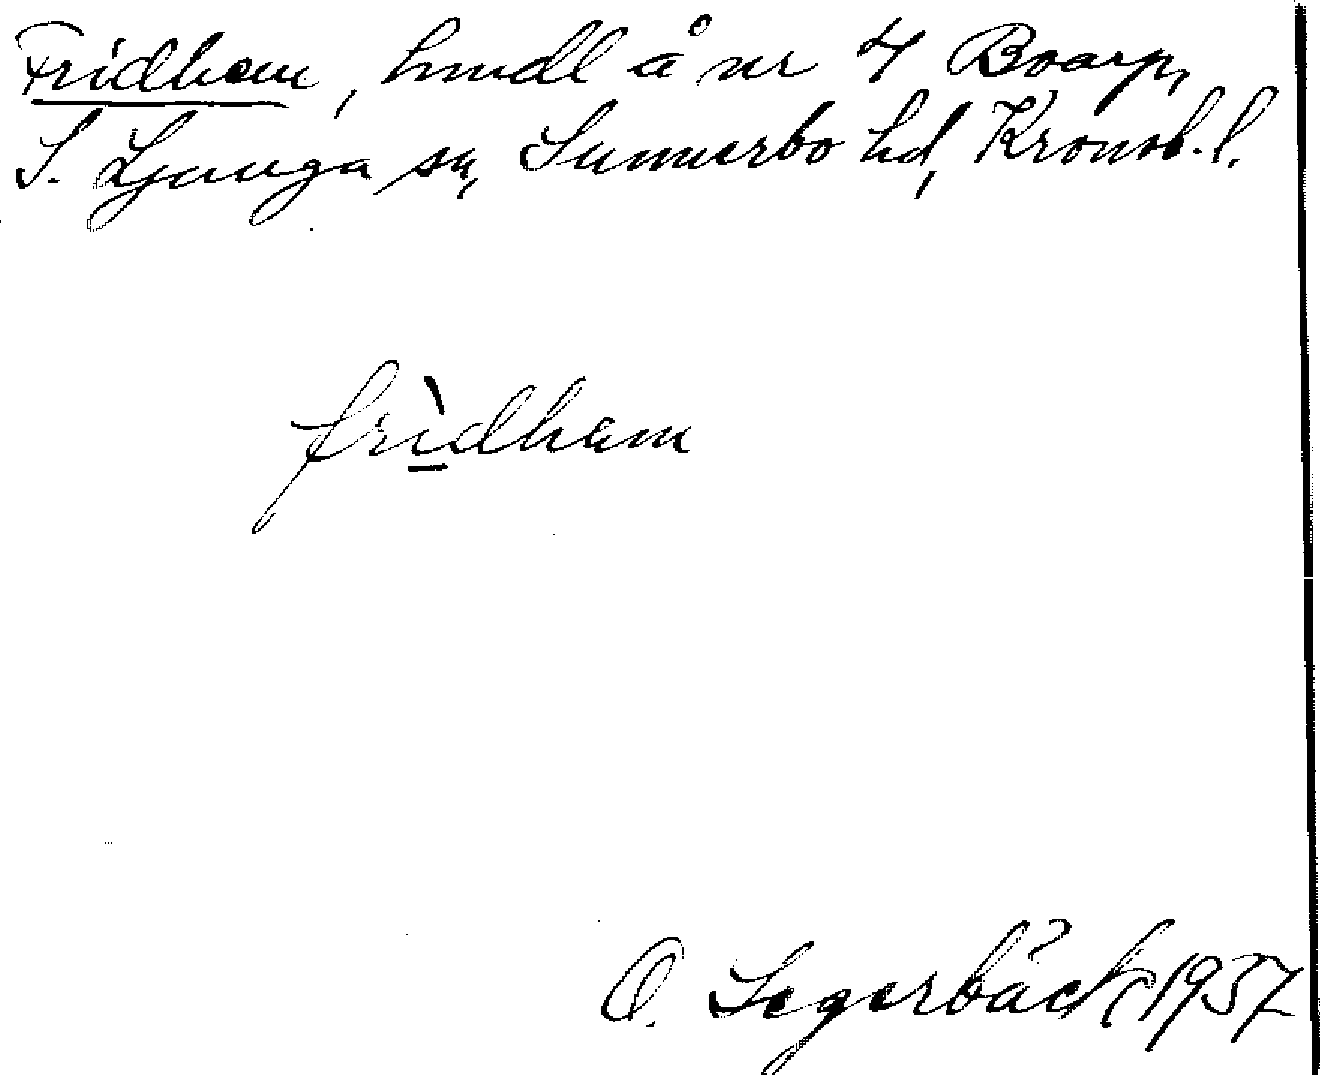 Fridhem, hmdl å nr 4 Boarp,
S. Ljunga sn, Sunnerbo hd, Kronob. l.
frì̲dhem
O. Segerbäck 1937